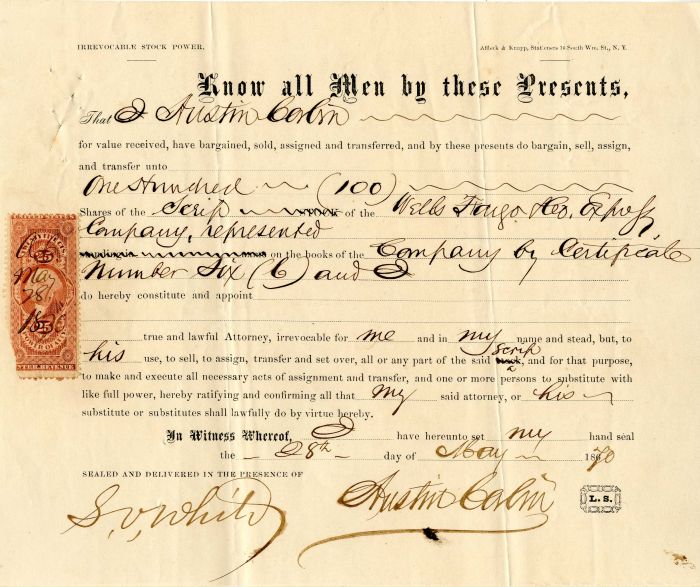 IRREVOCABLE STOCK POWER.
Affleck & Knapp, Stationers 16 South Wm. St., N. Y.
Know all Men by these Presents,
That I Austin Corbin
for value received, have bargained, sold, assigned and transferred, and by these presents do bargain, sell, assign,
and transfer unto
One Hundred (100)
Shares of the Scrip of the Wells Fargo & Co. Express
Company, represented
on the books of the Company by Certificate
Number Six (6) and I
do hereby constitute and appoint
true and lawful Attorney, irrevocable for me and in my name and stead, but, to
his use, to sell, to assign, transfer and set over, all or any part of the said stock Scrip, and for that purpose,
to make and execute all necessary acts of assignment and transfer, and one or more persons to substitute with
like full power, hereby ratifying and confirming all that my said attorney, or his
substitute or substitutes shall lawfully do by virtue hereby.
In Witness Whereof, I have hereunto set my hand seal
the 28th day of May 1870
SEALED AND DELIVERED IN THE PRESENCE OF
S. V. White
Austin Corbin
L. S.
25
May
28
25